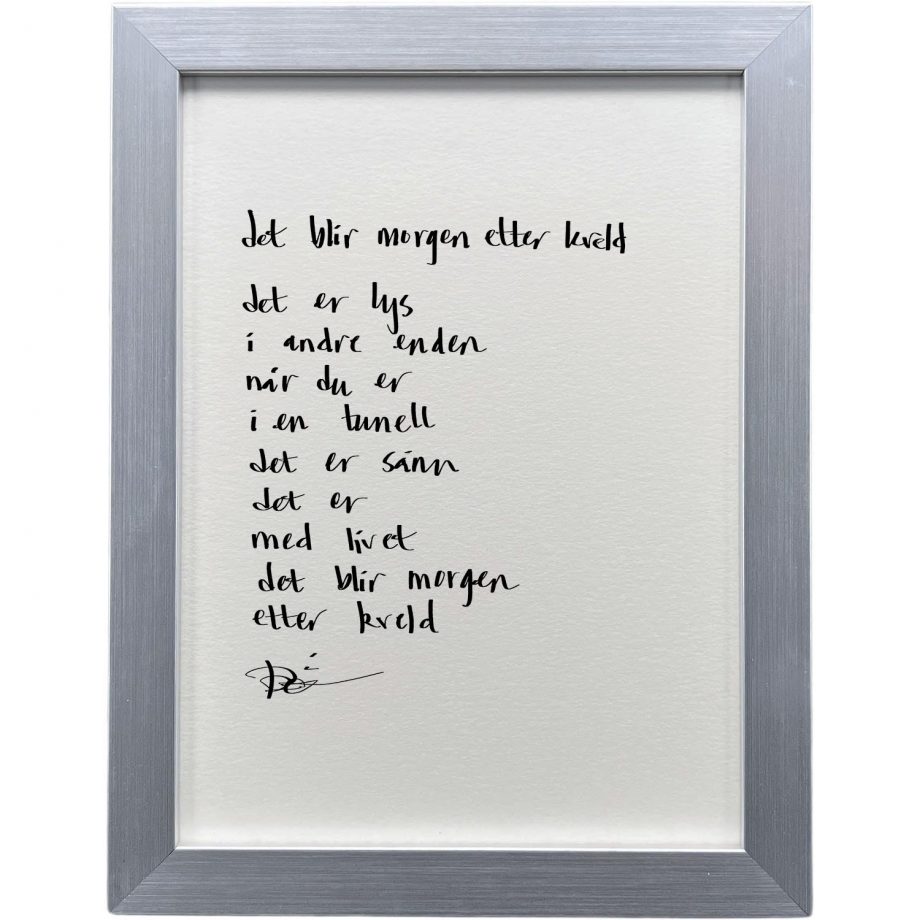 det blir morgen etter kveld
det er lys
i andre enden
når du er
i en tunell
det er sånn
det er
med livet
det blir morgen
etter kveld